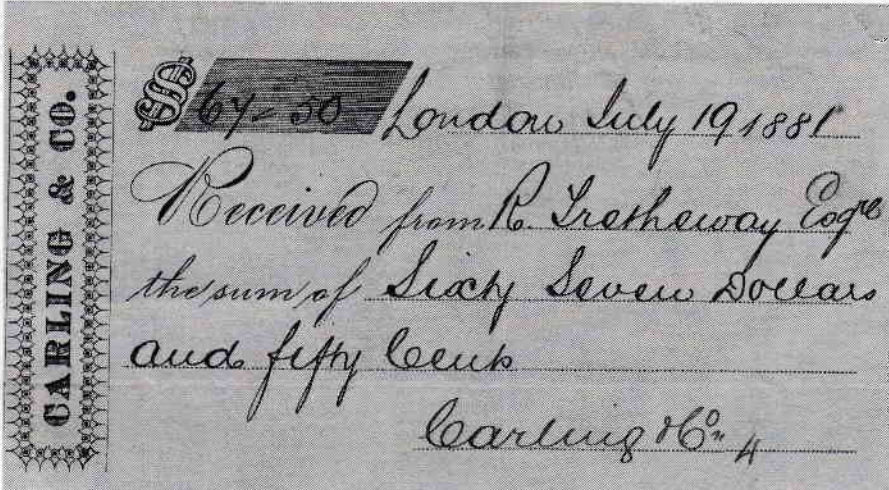 CARLING & CO.
$ 67-50 London July 19 1881
Received from R. Tretheway Esqre
the sum of Sixty Seven Dollars
and fifty Cents
Carling & Co